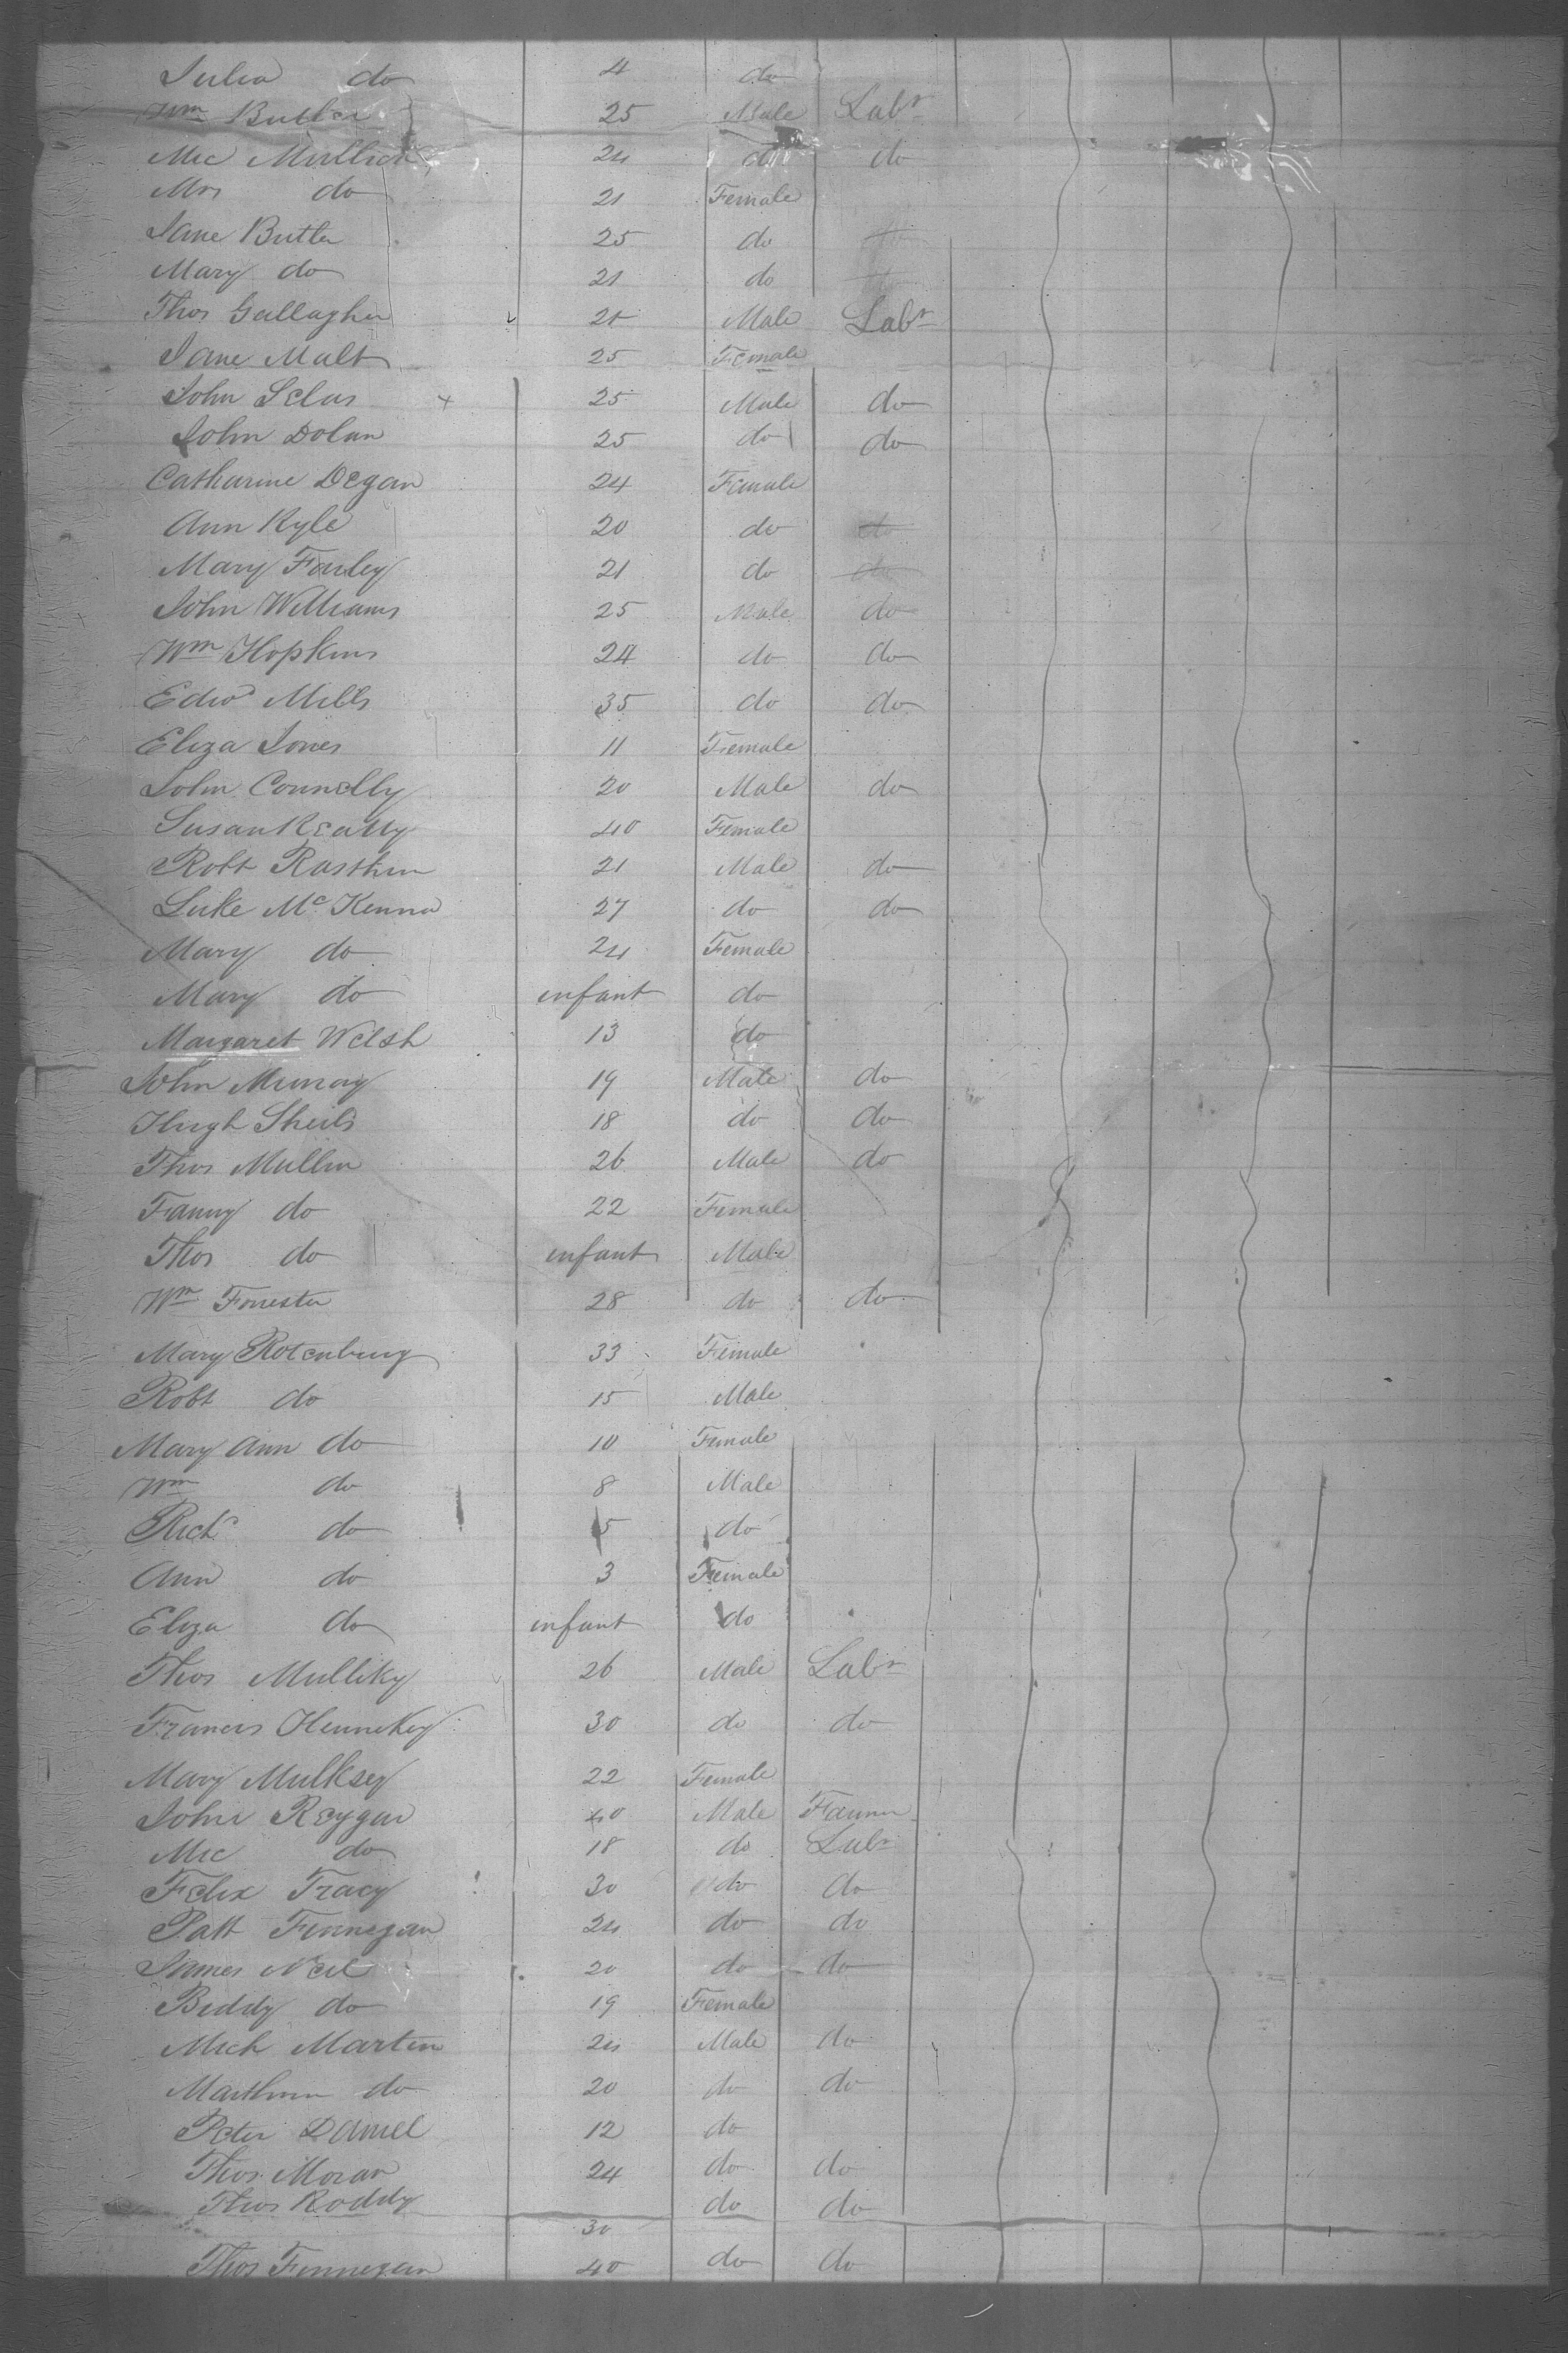 Julia do 4 do
Wm Butler 25 Male Labr
Mic Mullien 24 do do
Mrs do 21 Female
Jane Butler 25 do do
Mary do 21 do
Thos Gallagher 25 Male Labr
Jane Malt 25 Female
John Selus x 25 Male do
John Dolan 25 do do
Catharine Degan 24 Female
Ann Kyle 20 do do
Mary Farley 21 do do
John Williams 25 Male do
Wm Hopkins 24 do do
Edwd Mills 35 do do
Eliza Jones 11 Female
John Connelly 20 Male do
Susan Keatty 40 Female
Robt 21 Male do
Luke McKenna 27 do do
Mary do 24 Female
Mary do infant do
Margaret Welsh 13 do
John Murray 19 Male do
Hugh Sheils 18 do do
Thos Mullin 26 Male do
Fanny do 22 Female
Thos do infant Male
Wm Forrester 28 do do
Mary Rotenburg 33 Female
Robt do 15 Male
Mary Ann do 10 Female
Wm do 8 Male
Richd do 5 do
Ann do 3 Female
Eliza do infant do
Thos Mulliky 26 Male Labr
Francis Hennekey 30 do do
Mary Mulksey 22 Female
John Reygan 40 Male Farmer
Mic do 18 do Labr
Felix Tracy 30 do do
Patt Finnegan 24 do do
James Neil 20 do do
Biddy do 19 Female
Mich Martin 24 Male do
do 20 do do
Peter Daniel 12 do
Thos Moran 24 do do
Thos Roddy 30 do do
Thos Finnegan 40 do do